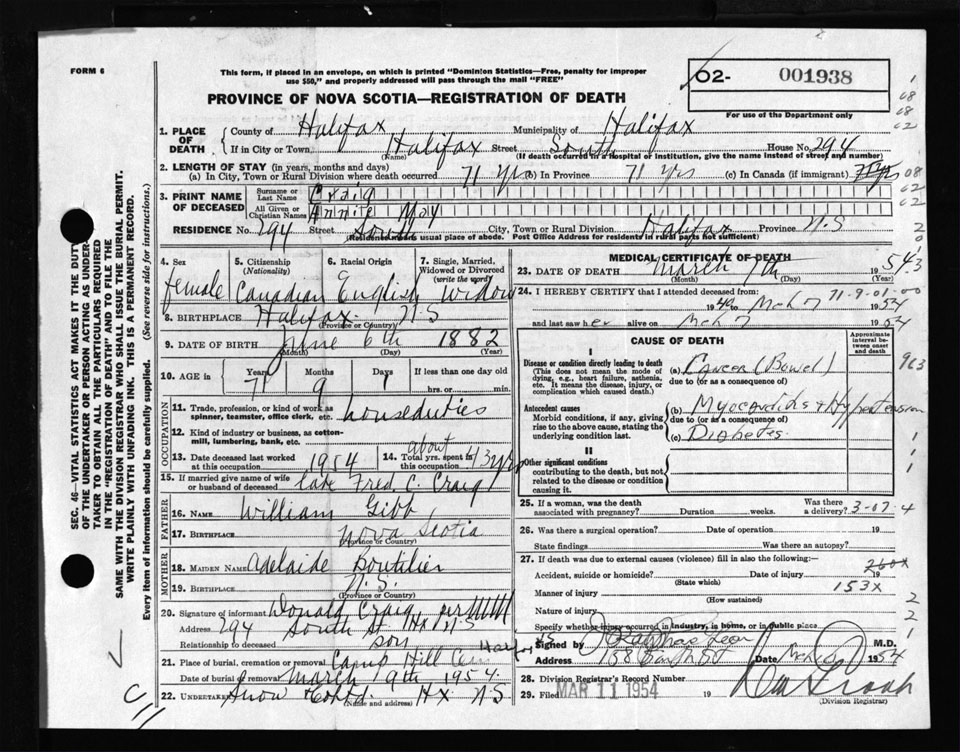 FORM 6
This form, if placed in an envelope, on which is printed "Dominion Statistics—Free, penalty for improper
use $50," and properly addressed will pass through the mail "FREE"
PROVINCE OF NOVA SCOTIA—REGISTRATION OF DEATH
O2- 001938
For use of the Department only
1. PLACE OF DEATH
County of Halifax Municipality of Halifax
If in City or Town Halifax Street South House No. 294
(Name) (If death occurred in a hospital or institution, give the name instead of street and number)
2. LENGTH OF STAY (in years, months and days)
(a) In City, Town or Rural Division where death occurred 71 yrs (b) In Province 71 Yrs (c) In Canada (if immigrant) 71 yrs
3. PRINT NAME OF DECEASED
Surname or Last Name Craig
All Given or Christian Names Annie May
RESIDENCE No. 294 Street South City, Town or Rural Division Halifax Province N.S
(Residence means usual place of abode. Post Office Address for residents in rural parts not sufficient)
4. Sex female
5. Citizenship (Nationality) Canadian
6. Racial Origin English
7. Single, Married, Widowed or Divorced (write the word) Widow
8. BIRTHPLACE Halifax N.S
(Province or Country)
9. DATE OF BIRTH June 6th 1882
(Month) (Day) (Year)
10. AGE in Years 71 Months 9 Days 1 If less than one day old
hrs. or min.
OCCUPATION
11. Trade, profession, or kind of work as spinner, teamster, office clerk, etc. houseduties
12. Kind of industry or business, as cotton-mill, lumbering, bank, etc.
13. Date deceased last worked at this occupation 1954
14. Total yrs. spent in this occupation about 13 yrs
15. If married give name of wife or husband of deceased late Fred C. Craig
FATHER
16. NAME William Gibb
17. BIRTHPLACE Nova Scotia
(Province or Country)
MOTHER
18. MAIDEN NAME Adelaide Boutilier
19. BIRTHPLACE N.S.
(Province or Country)
20. Signature of informant Donald Craig, per
Address 294 South St Hx N.S
Relationship to deceased son
21. Place of burial, cremation or removal Camp Hill Cem Hx
Date of burial or removal March 9th 1954
22. UNDERTAKER Snow & Co Ltd. Hx N.S
(Name and address)
MEDICAL CERTIFICATE OF DEATH
23. DATE OF DEATH March 7th 1954
(Month) (Day) (Year)
24. I HEREBY CERTIFY that I attended deceased from:
1940 Mch 7 1954
71-9-01-00
and last saw her alive on Mch 7 1954
CAUSE OF DEATH
Approximate interval between onset and death
I
Disease or condition directly leading to death
(This does not mean the mode of dying, e.g., heart failure, asthenia, etc. It means the disease, injury, or complication which caused death.)
(a) Cancer (Bowel)
due to (or as a consequence of)
Antecedent causes
Morbid conditions, if any, giving rise to the above cause, stating the underlying condition last.
(b) Myocarditis & Hypertension
due to (or as a consequence of)
(c) Diabetes
II
Other significant conditions
contributing to the death, but not related to the disease or condition causing it.
25. If a woman, was the death associated with pregnancy? Duration weeks. Was there a delivery? 3-07-4
26. Was there a surgical operation? Date of operation 19
State findings Was there an autopsy?
27. If death was due to external causes (violence) fill in also the following:
Accident, suicide or homicide? Date of injury 19
(State which)
260x
Manner of injury 153x
(How sustained)
Nature of injury
Specify whether injury occurred in industry, in home, or in public place
Signed by M.D.
Address 158 Date Mch 1954
28. Division Registrar's Record Number
29. Filed MAR 11 1954 19
(Division Registrar)
SEC. 46—VITAL STATISTICS ACT MAKES IT THE DUTY
OF THE UNDERTAKER OR PERSON ACTING AS UNDER-
TAKER TO OBTAIN ALL THE PARTICULARS REQUIRED
IN THE "REGISTRATION OF DEATH" AND TO FILE THE
SAME WITH THE DIVISION REGISTRAR WHO SHALL ISSUE THE BURIAL PERMIT.
WRITE PLAINLY WITH UNFADING INK. THIS IS A PERMANENT RECORD.
Every item of information should be carefully supplied. (See reverse side for instructions.)